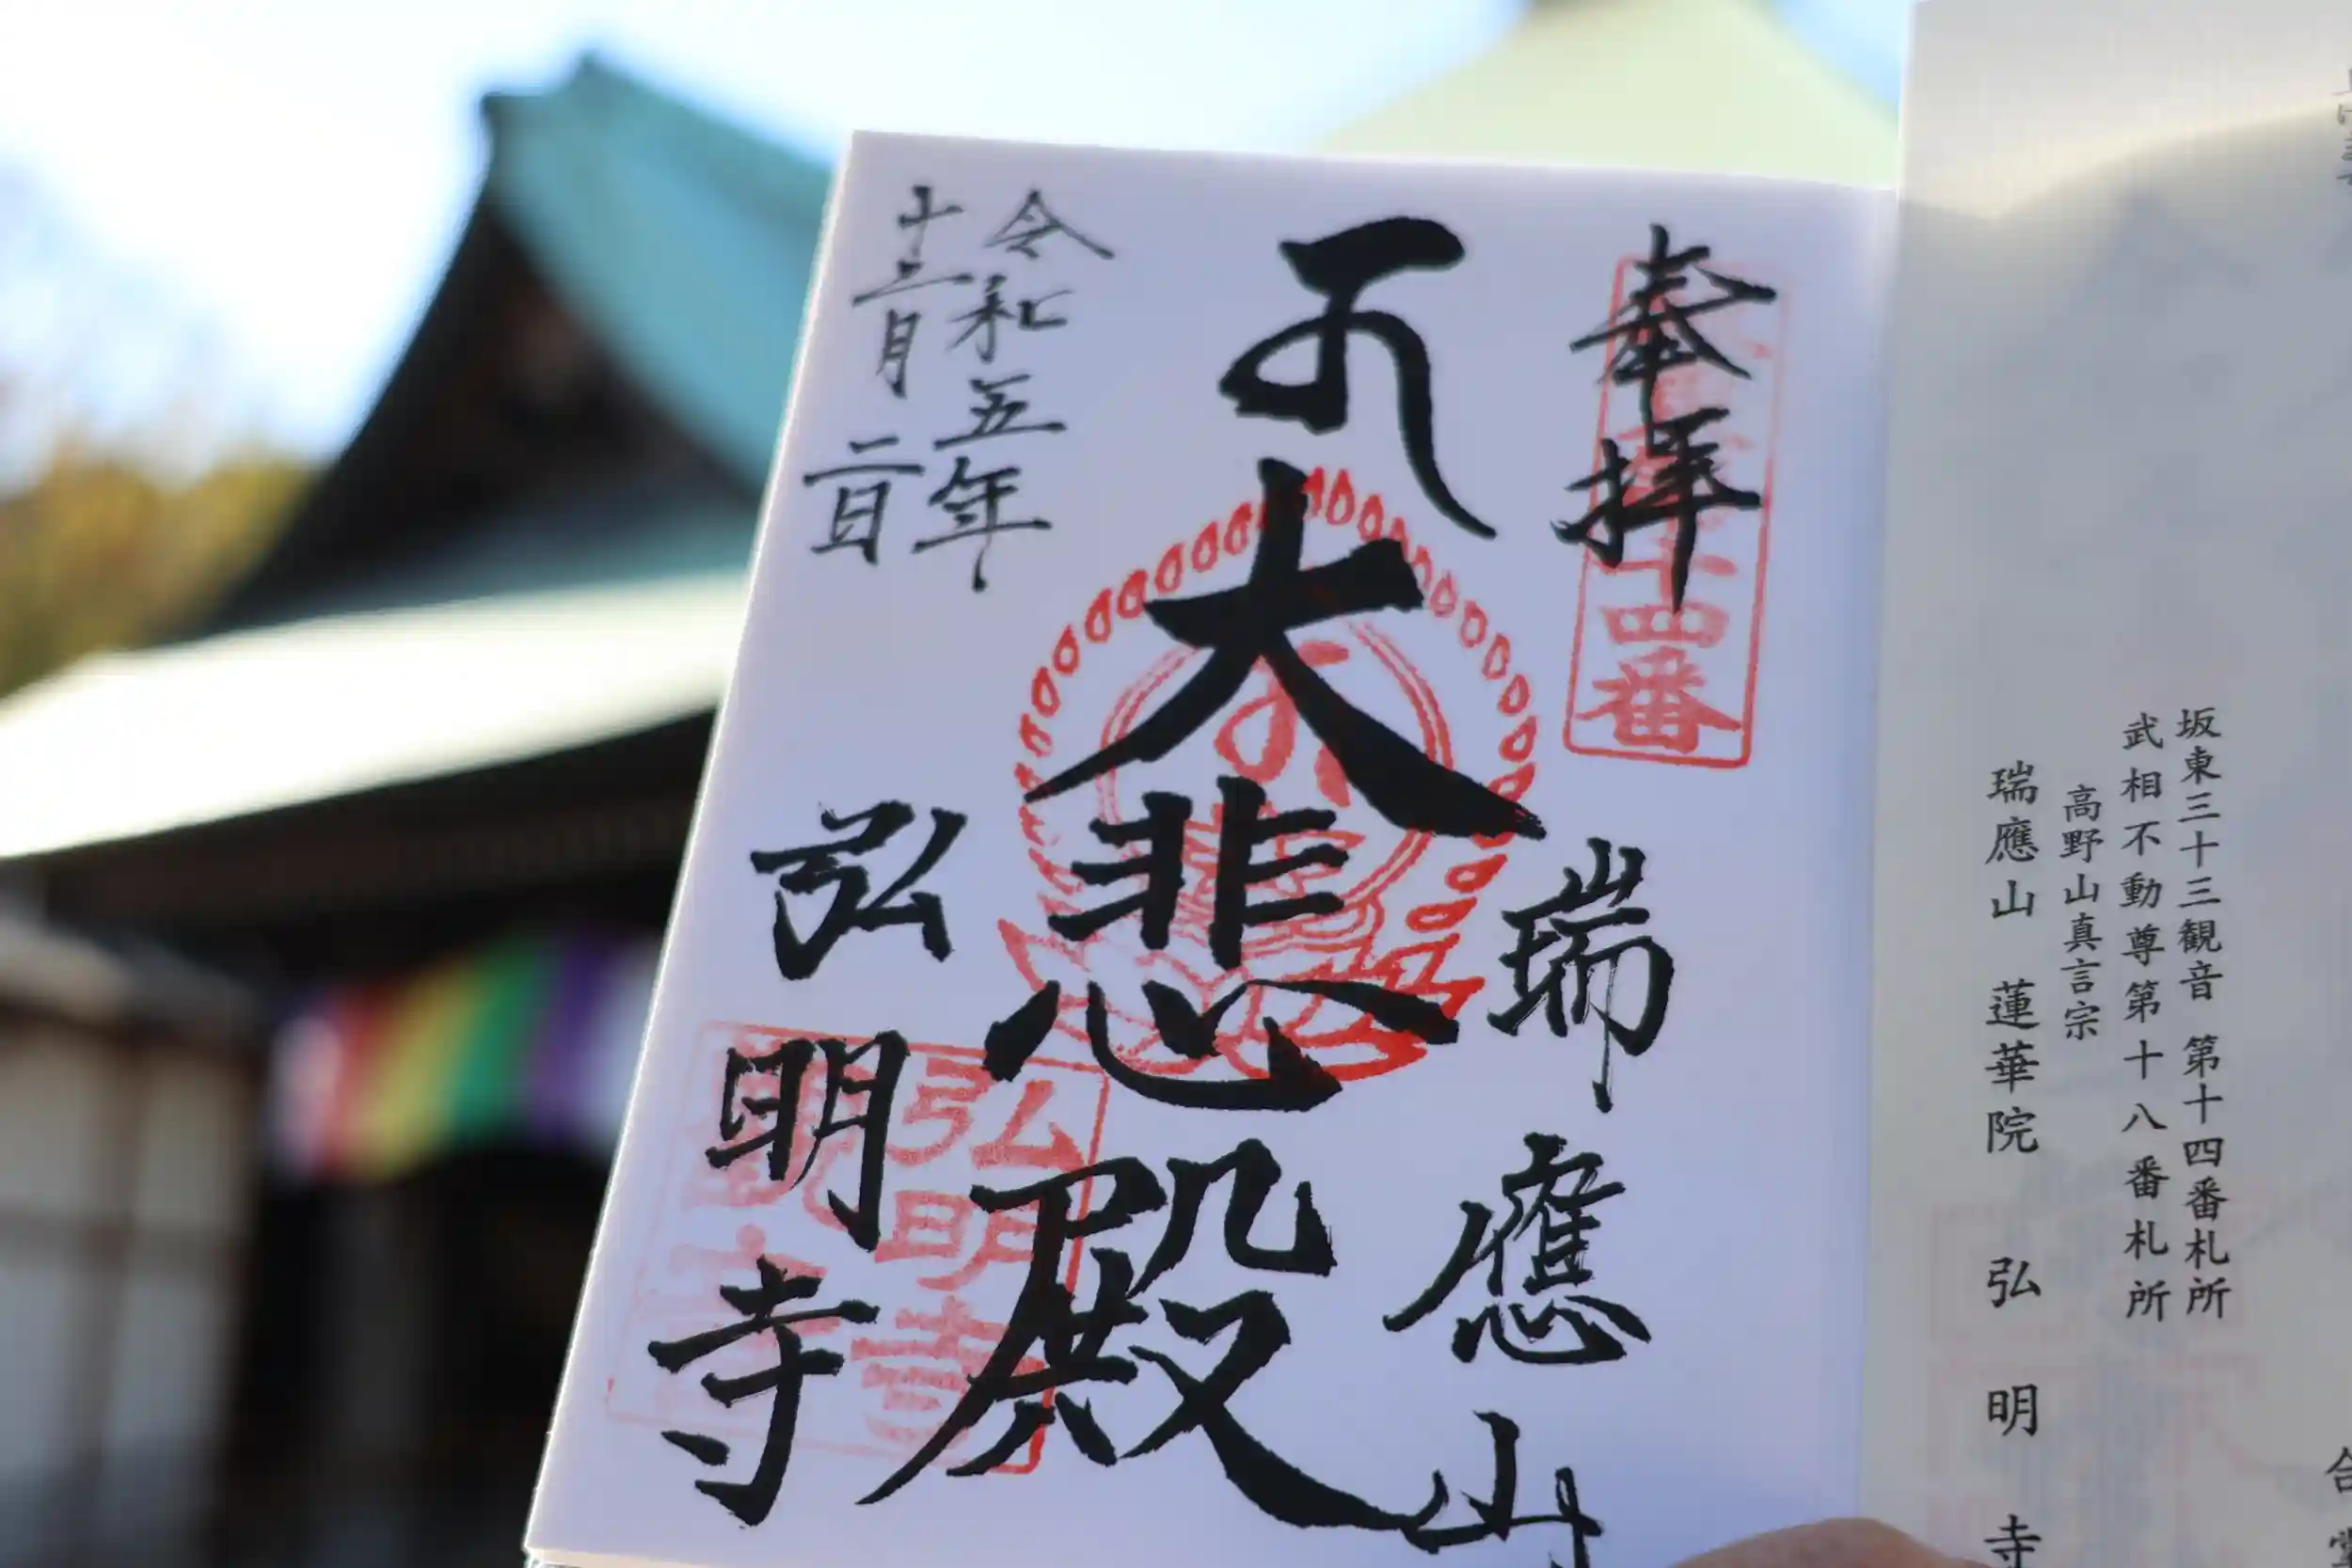 坂東三十三観音 第十四番札所
武相不動尊第十八番札所
高野山真言宗
瑞應山 蓮華院 弘明寺
奉拝
十四番
瑞應山
大悲殿
弘明寺
弘明寺
令和五年
十二月二日